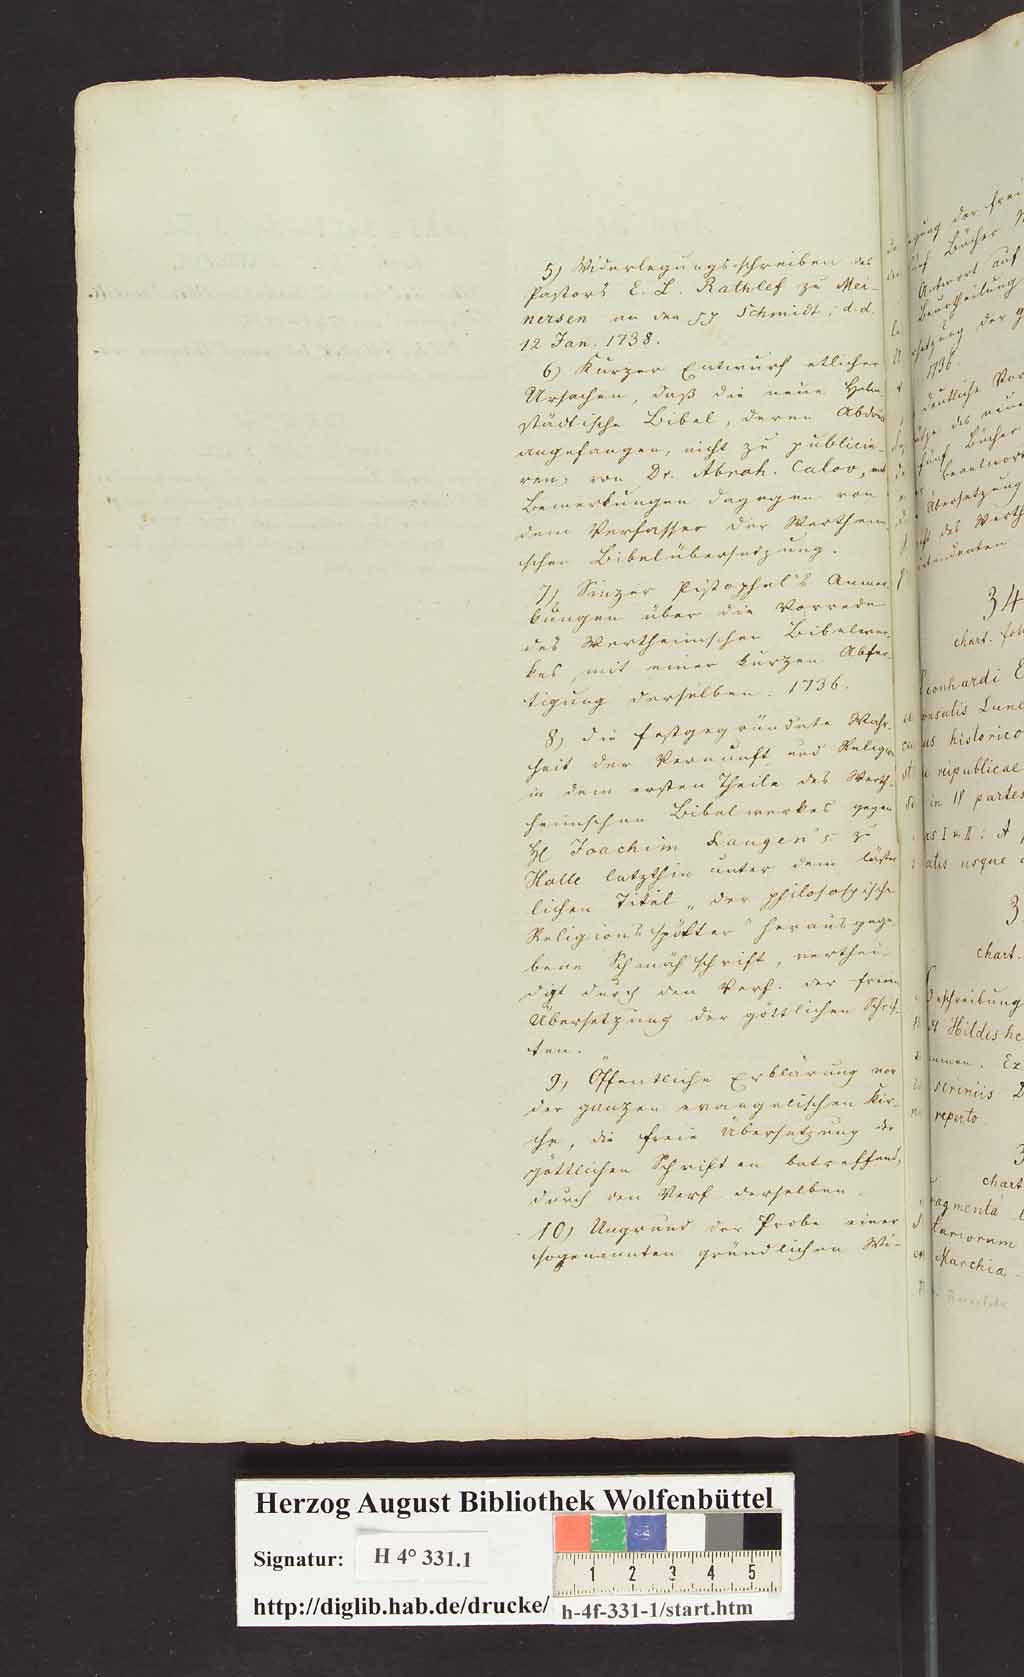 5) Widerlegungsschreiben des
Pastors E. L. Rathlef zu Mei-
nersen an den pp Schmidt, d. d.
12 Jan. 1738.
6) Kurzer Entwurf etlicher
Ursachen, daß die neue Helm-
städtische Bibel, deren Abdruck
angefangen, nicht zu publicie-
ren; von Dr. Abrah. Calov, mit
Bemerkungen dagegen von
dem Verfasser der Wertheim-
schen Bibelübersetzung.
7) Sinzer Pistophel's Anmer-
kungen über die Vorrede
des Wertheimschen Bibelwer-
kes, mit einer kurzen Abfer-
tigung derselben. 1736.
8) die festgegründete Wahr-
heit der Vernunft und Religion
in dem ersten Theile des Werth-
heimschen Bibelwerkes gegen
H. Joachim Langen's zu
Halle letzthin unter dem läster-
lichen Titel „der philosophische
Religionsspötter" herausgege-
bene Schmähschrift, verthei-
digt durch den Verf. der freien
Übersetzung der göttlichen Schrif-
ten.
9) Öffentliche Erklärung vor
der ganzen evangelischen Kir-
che, die freie Übersetzung der
göttlichen Schriften betreffend,
durch den Verf. derselben.
10) Ungrund der Probe einer
sogenannten gründlichen Wi-
der frei
Bücher
Antwort auf
Beurtheilung
der g
1736.
deutliche Vor
des neue
fünf Bücher
beantwor
Übersetzung
des Werth
34
chart. fol
Leonhardi E
onsulis Lune
us historico
reipublicae
in 11 partes
I & II: A
atis usque
3
chart.
Beschreibung
Hildeshe
Ex
scriniis
reperto
3
chart
ragmenta
tariorum
Marchia
Herzog August Bibliothek Wolfenbüttel
Signatur: H 4° 331.1
1 2 3 4 5
http://diglib.hab.de/drucke/ h-4f-331-1/start.htm